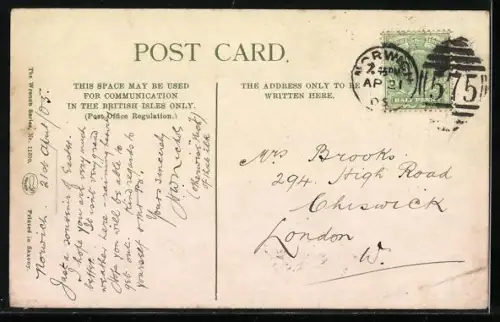 POST CARD.
THIS SPACE MAY BE USED
FOR COMMUNICATION
IN THE BRITISH ISLES ONLY.
(Post Office Regulation.)
THE ADDRESS ONLY TO BE
WRITTEN HERE.
NORWICH
AP 21
05
575
HALFPENNY
The Wrench Series, No.
Printed in Saxony
Norwich 21st April/05.
Just a souvenir of Easter
& hope you are very much
better. It isn't very grand
weather here - raining hard
Hope you will be able to
get out. Kind regards to
yourself & Mr B.
Yours sincerely
Mrs Brooks
294. High Road
Chiswick
London
W.